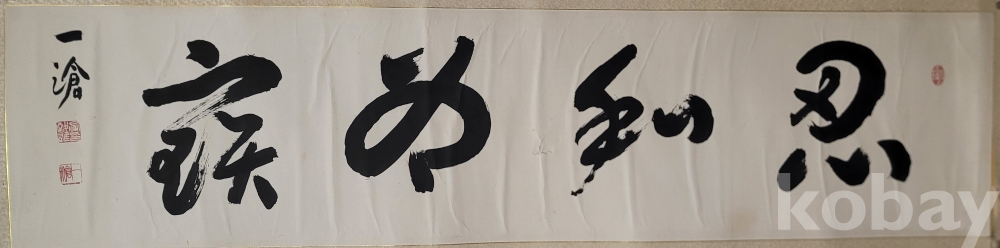 忍和為寶
一滄
kobay